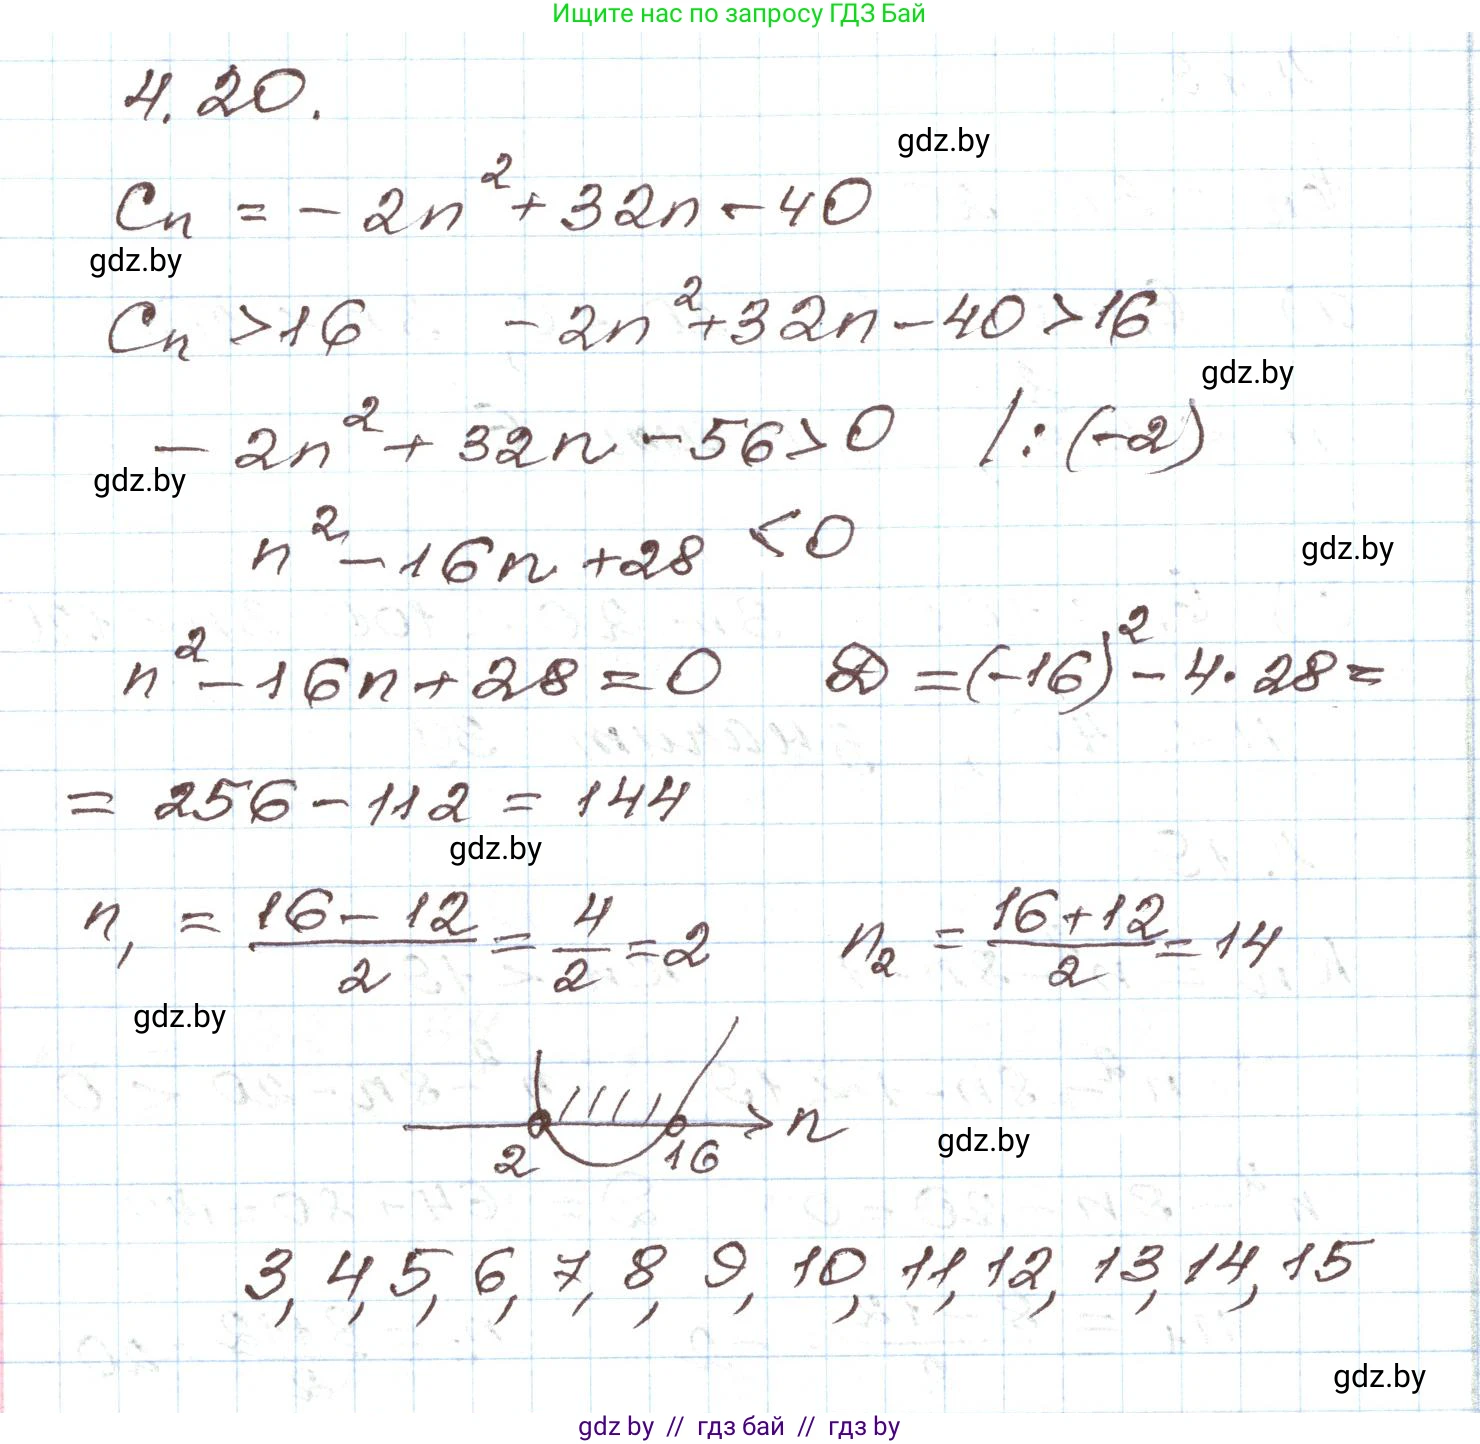 Ищите нас по запросу ГДЗ Бай
4.20.
gdz.by
Cₙ = - 2n² + 32n - 40
gdz.by
Cₙ > 16    - 2n² + 32n - 40 > 16
gdz.by
- 2n² + 32n - 56 > 0   /: (-2)
gdz.by
n² - 16n + 28 < 0
gdz.by
n² - 16n + 28 = 0    D = (-16)² - 4 · 28 =
= 256 - 112 = 144
gdz.by
n₁ = (16 - 12)/2 = 4/2 = 2    n₂ = (16 + 12)/2 = 14
gdz.by
2    16    n
gdz.by
3, 4, 5, 6, 7, 8, 9, 10, 11, 12, 13, 14, 15
gdz.by
gdz by // гдз бай // гдз by